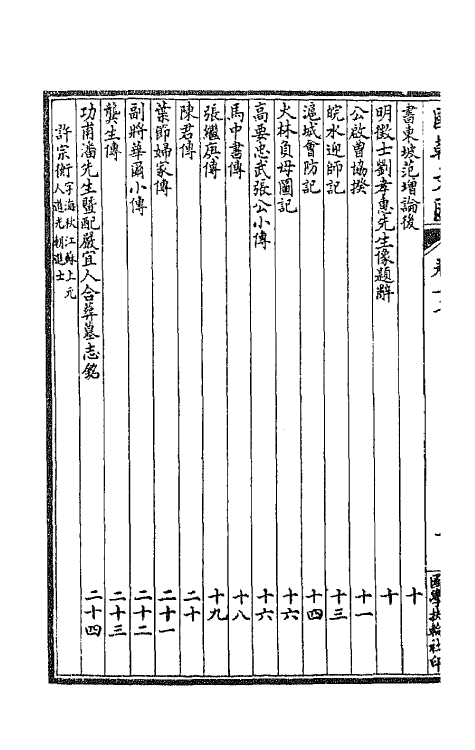 書東坡范增論後 十
明徵士劉孝惠先生像題辭 十
公啟曹協揆 十一
皖水迎師記 十三
滬城會防記 十四
火林負母圖記 十六
高要忠武張公小傳 十六
馬中書傳 十八
張繼庚傳 十九
陳君傳 二十
葉節婦家傳 二十一
副將華爾小傳 二十二
龔生傳 二十三
功甫潘先生暨配嚴宜人合葬墓志銘 二十四
許宗衡字海秋江蘇上元人道光朝進士
國學扶輪社印